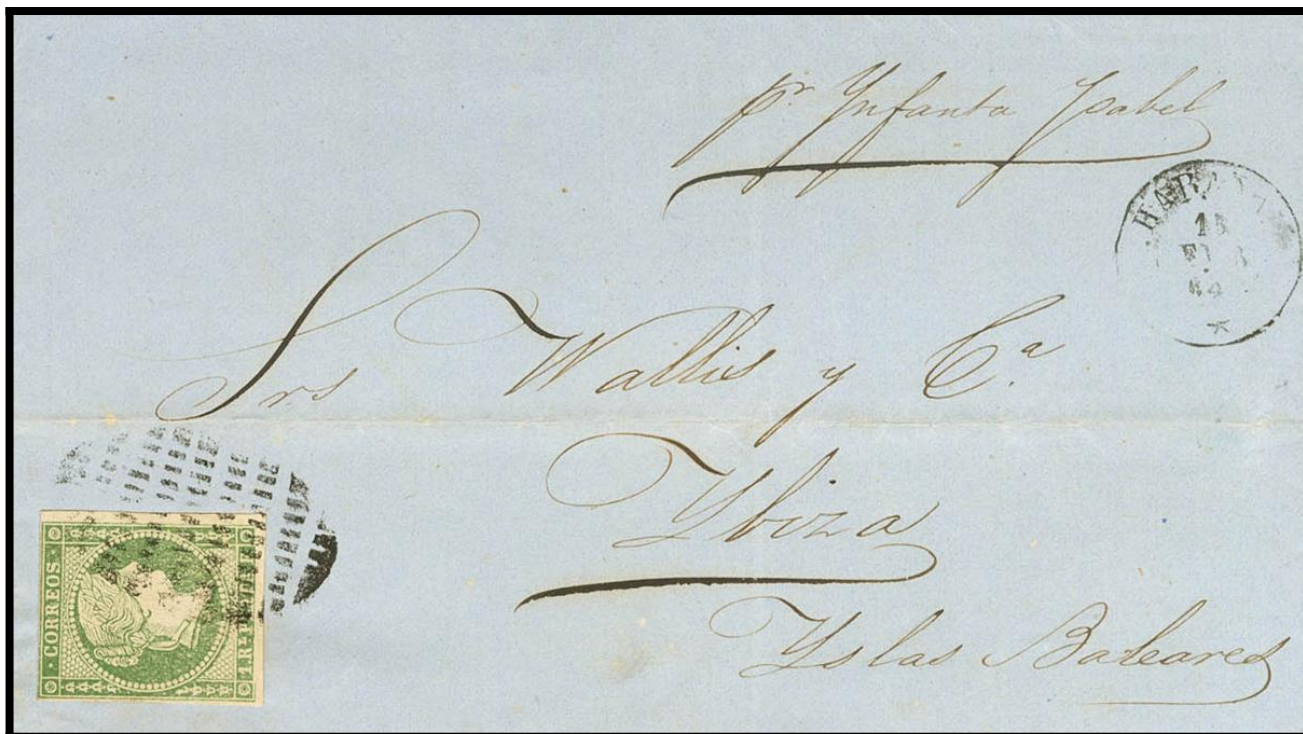 pr. Ynfanta Ysabel
HABANA
15
64
Srs Wallis y Ca.
Ybiza
Yslas Baleares
CORREOS